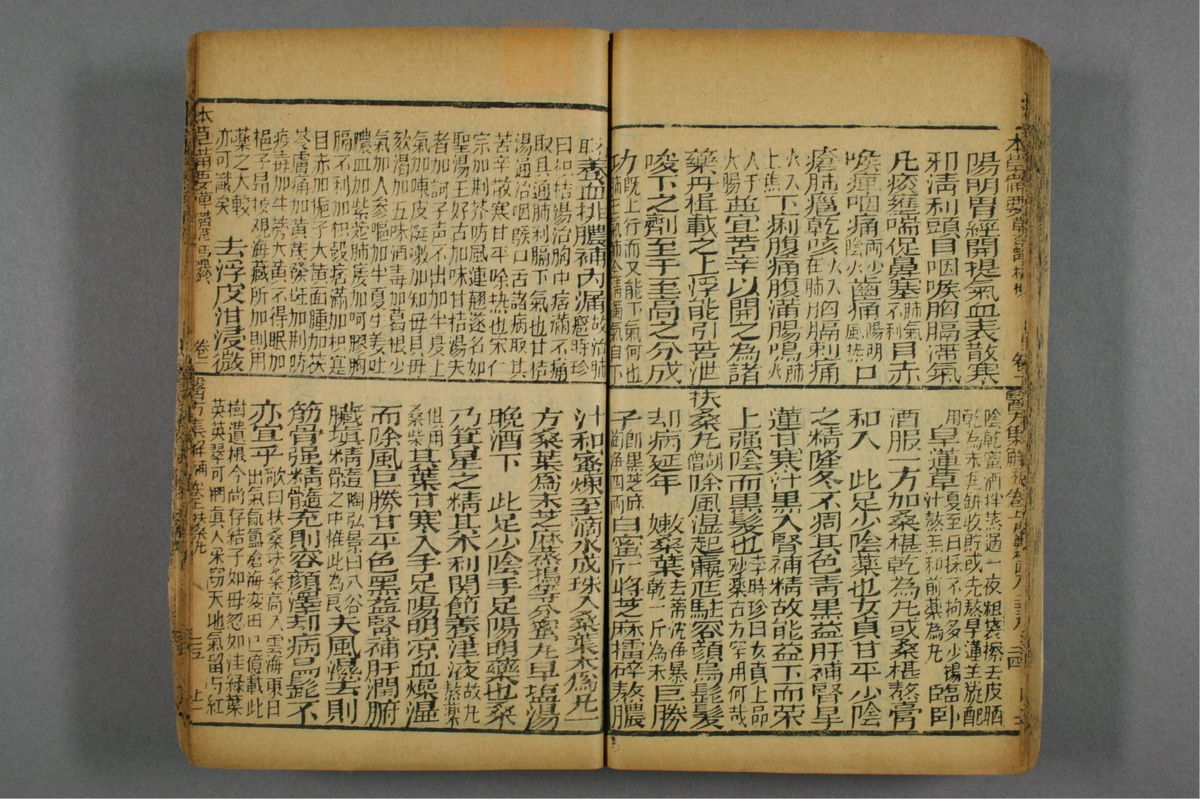 本草備要 草部 桔梗 卷一
陽明胃經開提氣血表散寒
邪清利頭目咽喉胸膈滯氣
凡痰壅喘促鼻塞肺氣不利目赤
喉痺咽痛兩少陰火齒痛陽明風熱口
瘡肺癰乾咳火鬱在肺胸膈刺痛
火入上焦下痢腹痛腹滿腸鳴肺火
入于大腸並宜苦辛以開之為諸
藥舟楫載之上浮能引苦泄
峻下之劑至于至高之分成
功既上行而又能下氣何也肺主氣肺金清濁氣自下
陰乾蜜酒拌蒸過一夜粗袋擦去皮晒乾為末瓦缾收貯或先熬旱蓮膏旋配
用旱蓮草夏至日採不拘多少搗汁熬膏和前藥為丸臨臥
酒服一方加桑椹乾為丸或桑椹熬膏
和入　此足少陰藥也女貞甘平少陰
之精隆冬不凋其色青黑益肝補腎旱
蓮甘寒汁黑入腎補精故能益下而榮
上強陰而黑髮也李時珍曰女貞上品妙藥古方罕用何哉
扶桑丸胡僧除風濕起羸尫駐容顏烏髭髮
却病延年　嫩桑葉去蒂洗淨暴乾一斤為末巨勝
子即黑芝麻淘淨四兩白蜜一斤將芝麻擂碎熬濃
養血排膿補內漏故治肺癰時珍
曰枳桔湯治胸中痞滿不痛
取其通肺利膈下氣也甘桔
湯通治咽喉口舌諸病取其
苦辛散寒甘平除熱也宋仁
宗加荊芥防風連翹遂名如
聖湯王好古加味甘桔湯失
音加訶子声不出加半夏上
氣加陳皮涎嗽加知母貝母
欬渴加五味酒毒加葛根少
氣加人參嘔加半夏生姜吐
膿血加紫菀肺痿加阿膠胸
膈不利加枳殼痞滿加枳實
目赤加梔子大黃面腫加茯
苓膚痛加黃芪發斑加荊防
疫毒加牛蒡大黃不得眠加
梔子昂按觀海藏所加則用
藥之大較亦可識矣　去浮皮泔浸微
本草備要 草部 卷一
汁和蜜煉至滴水成珠入桑葉末為丸一
方桑葉為末芝麻蒸搗等分蜜丸早鹽湯
晚酒下　此足少陰手足陽明藥也桑
乃箕星之精其木利關節養津液熬藥故丸但用桑柴其葉甘寒入手足陽明凉血燥濕
而除風巨勝甘平色黑益腎補肝潤腑
臟填精髓陶弘景曰八谷之中惟此為良夫風濕去則
筋骨强精髓充則容顏澤却病烏髭不
亦宜乎歌曰扶桑扶桑高入雲海東日出氣氤氳滄海變田幾億載此樹遺根今尚存結子如丹忽如注綠葉英英翠可餌真人采竊天地氣留与紅
醫方集解 補 卷上 扶桑丸